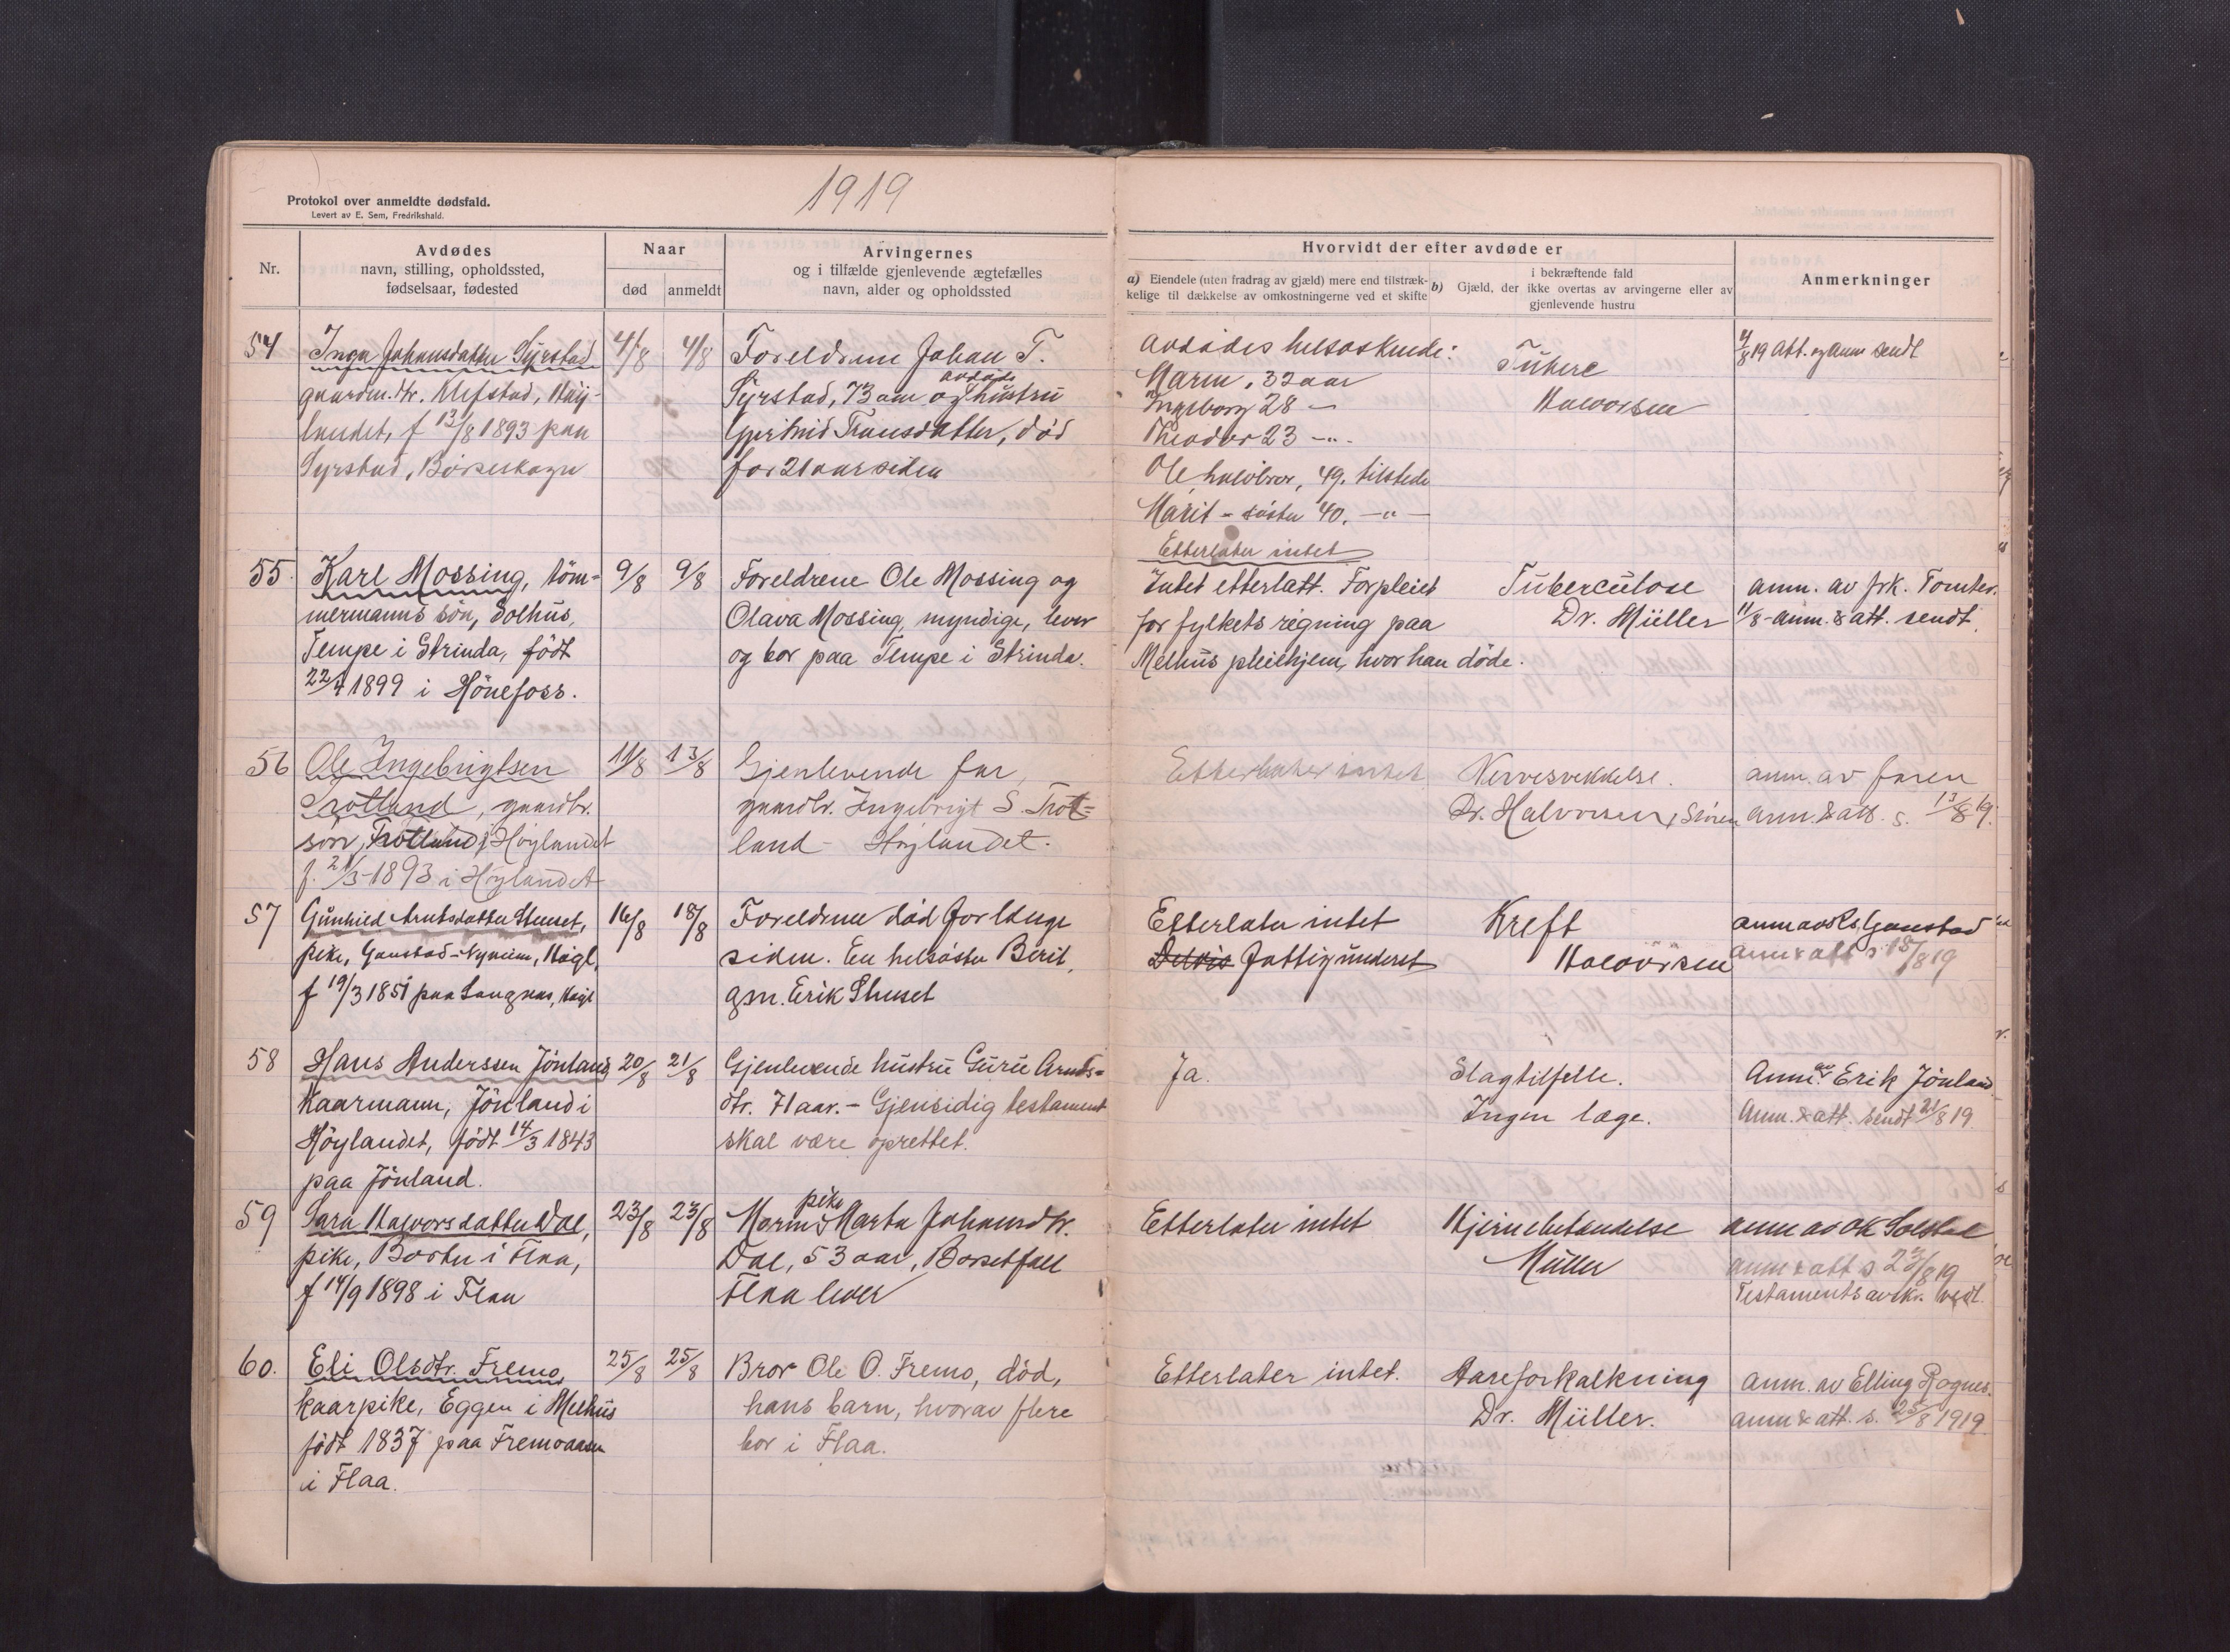 1919
Protokol over anmeldte dødsfald.
Levert av E. Sem, Fredrikshald.
Nr.
Avdødes
navn, stilling, opholdssted,
fødselsaar, fødested
Naar
død
anmeldt
Arvingernes
og i tilfælde gjenlevende ægtefælles
navn, alder og opholdssted
Hvorvidt der efter avdøde er
a) Eiendele (uten fradrag av gjæld) mere end tilstræk-
kelige til dækkelse av omkostningerne ved et skifte
b) Gjæld, der
i bekræftende fald
ikke overtas av arvingerne eller av
gjenlevende hustru
Anmerkninger
54
Inga Johansdatter Syrstad
gaardm.dtr. Mefstad, Høy-
landet, f 13/8 1893 paa
Syrstad, Børseskogn
4/8
4/8
Foreldrene Johan T.
Syrstad, 73 aar og avdøde hustru
Gjertrud Tronsdatter, død
for 21 aar siden
avdødes helsøskende:
Maren, 32 aar
Ingeborg 28 –
Theodor 23 –"–
Ole halvbror, 49. tilstede
Marit – søster 40. –"–
Etterlater intet
Tuberc
Halvorsen
4/8 19 att. og anm sendt
55.
Karl Mossing, töm-
mermanns sön, Solhus,
Tempe i Strinda, födt
22/4 1899 i Hönefoss.
9/8
9/8
Foreldrene Ole Mossing og
Olava Mossing, myndige, lever
og bor paa Tempe i Strinda.
Intet etterlatt. Forpleiet
for fylkets regning paa
Melhus pleiehjem, hvor han döde.
Tuberculose
Dr. Müller
anm. av frk. Tomter.
11/8 - anm. & att. sendt.
56
Ole Ingebrigtsen
Trotland, gaardbr.
sön, Trotland i Höylandet
f. 21/3 - 1893 i Höylandet
11/8
13/8
Gjenlevende far,
gaardbr. Ingebrigt S. Trot-
land – Höylandet.
Etterlater intet
Nervesvekkelse.
Dr. Halvorsen, Stören
anm. av faren
anm. & att. s. 13/8 19.
57
Gunhild Arntsdatter Stuset,
pike, Gaustad-Nyheim, Høigl,
f 19/3 1851 paa Langnes, Høigl
16/8
18/8
Foreldrene død for lenge
siden. En helsøster Berit,
gm. Erik Stuset
Etterlater intet
Delvis fattigunderst
Kreft
Halvorsen
anm av Gaustad
anm & att s 18/8 19
58
Hans Anderssen Jönland
kaarmann, Jönland i
Höylandet, födt 14/3 1843
paa Jönland.
20/8
21/8
Gjenlevende hustru Guru Arnts-
dtr. 71 aar. – Gjensidig testament
skal være oprettet.
Ja.
Slagtilfelle.
Ingen læge.
Anm. av Erik Jönland.
Anm. & att. sendt 21/8 19.
59
Sara Halvorsdatter Dal,
pike, Borten i Flaa,
f 14/9 1898 i Flaa
23/8
23/8
Moren, pike Marta Johansdtr.
Dal, 53 aar, Borsetfall
Flaa lever
Etterlater intet
Hjernebetendelse
Müller
anm av OK Solstad
anm & att s 23/8 19
Testamentsavskr. vedl.
60.
Eli Olsdtr. Fremo,
kaarpike, Eggen i Melhus
födt 1837 paa Fremoaasen
i Flaa.
25/8
25/8
Bror Ole O. Fremo, död,
hans barn, hvorav flere
bor i Flaa.
Etterlater intet.
Aareforkalkning
Dr. Müller.
anm. av Elling Rognes.
anm & att. s. 25/8 1919.